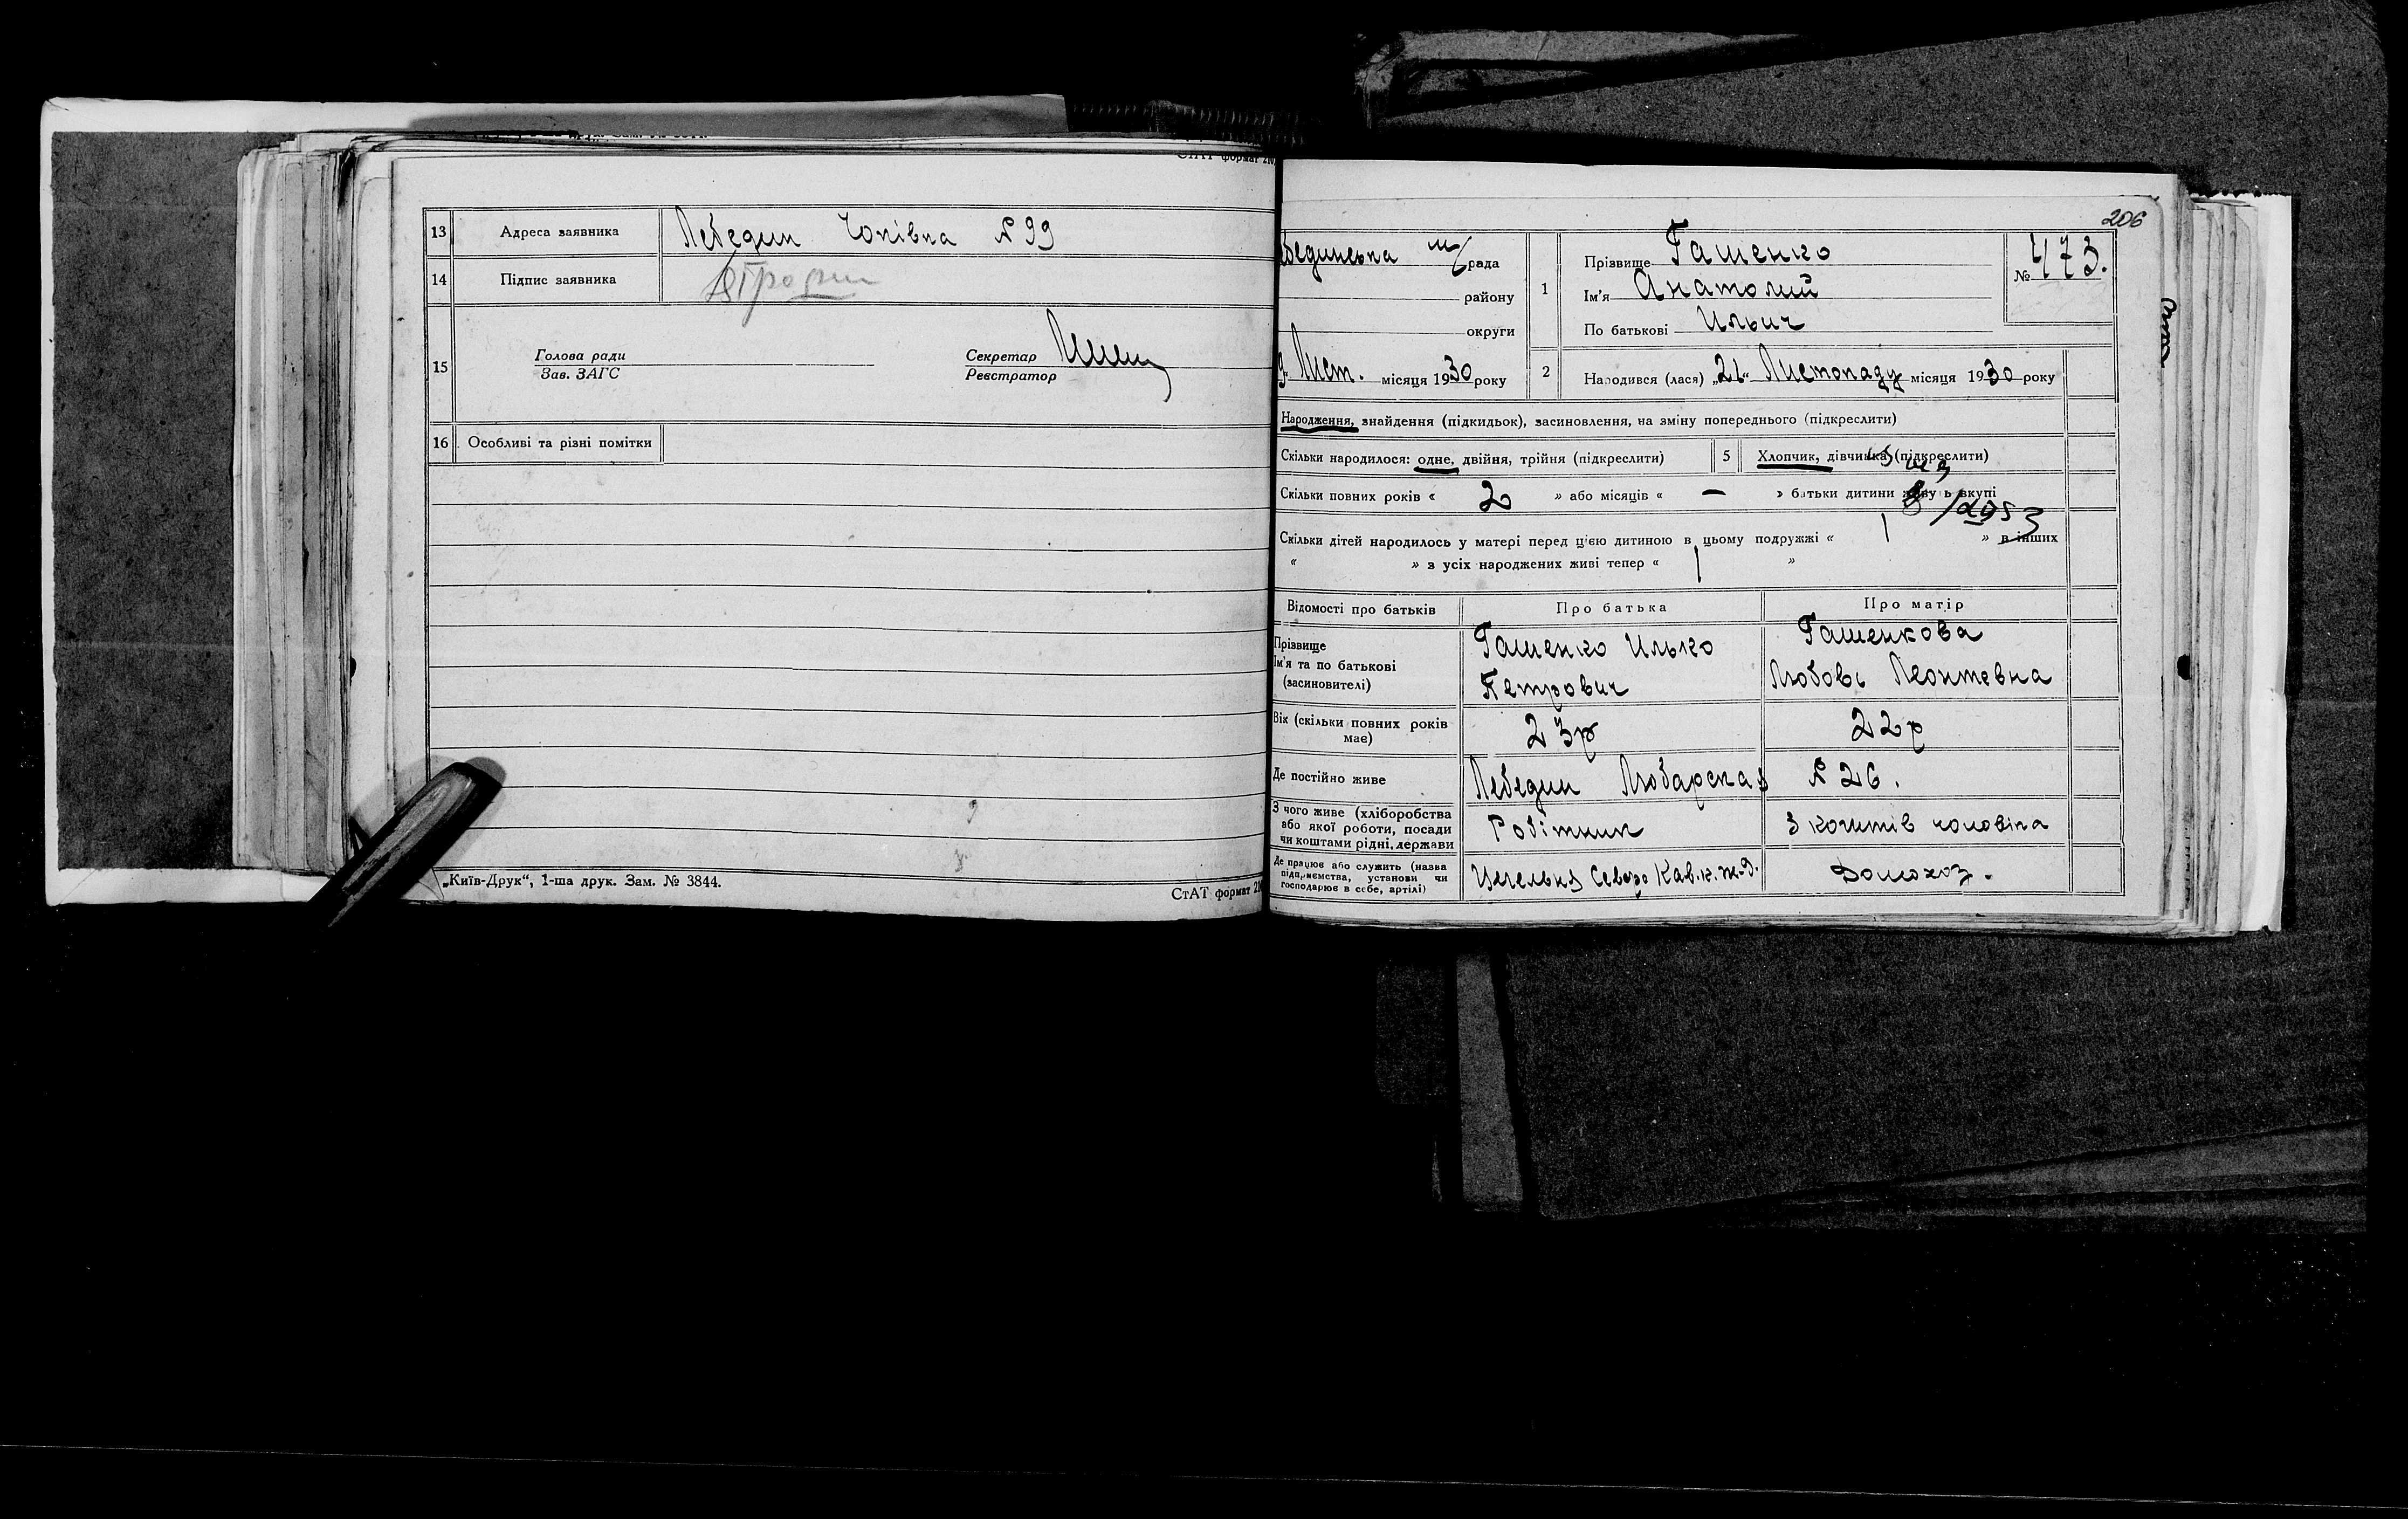 СтАТ формат 210
13 Адреса заявника Лебедин Чопівка № 99
14 Підпис заявника
15 Голова ради
Зав. ЗАГС
Секретар
Реєстратор
16 Особливі та різні помітки
„Київ-Друк“, 1-ша друк. Зам. № 3844.
СтАТ формат 210
206
бединська м/рада
району
округи
9 Лист. місяця 1930 року
1 Прізвище Гашенко
Ім'я Анатолий
По батькові Ильич
№ 473.
2 Народився (лася) „21“ Листопаду місяця 1930 року
Народження, знайдення (підкидьок), засиновлення, на зміну попереднього (підкреслити)
Скільки народилося: одне, двійня, трійня (підкреслити) 5 Хлопчик, дівчинка (підкреслити)
Скільки повних років « 2 » або місяців « — » батьки дитини живуть вкупі
Скільки дітей народилось у матері перед цією дитиною в цьому подружжі « 1 » в інших
« » з усіх народжених живі тепер « 1 »
Відомості про батьків Про батька Про матір
Прізвище
Ім'я та по батькові
(засиновителі)
Гашенко Илько
Петрович
Гашенкова
Любовь Леонтевна
Вік (скільки повних років має) 23р 22р
Де постійно живе Лебедин Любарская № 26.
З чого живе (хліборобства
або якої роботи, посади
чи коштами рідні, держави
Робітник
З коштів чоловіка
Де працює або служить (назва
підприємства, установи чи
господарює в себе, артілі)
Цегельня Северо Кав. к. ж.д.
Домохоз.